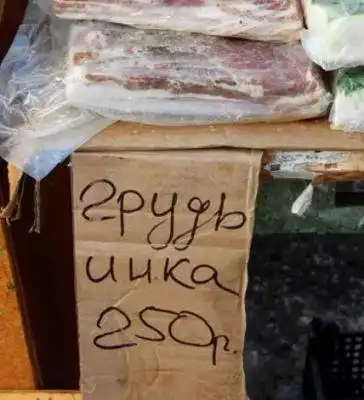 грудь
инка
250р.